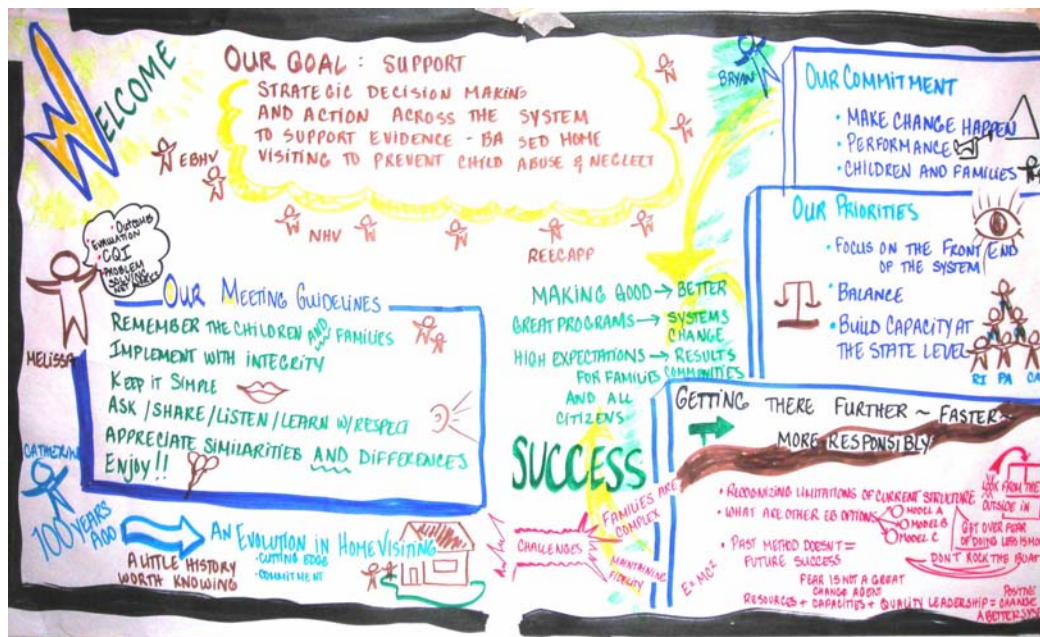 WELCOME
OUR GOAL : SUPPORT
STRATEGIC DECISION MAKING
AND ACTION ACROSS THE SYSTEM
TO SUPPORT EVIDENCE - BA SED HOME
VISITING TO PREVENT CHILD ABUSE & NEGLECT
EBHV
NHV
REECAPP
BRYAN
OUTCOMES
EVALUATION
CQI
PROBLEM
SOLVING
MELISSA
OUR MEETING GUIDELINES
REMEMBER THE CHILDREN AND FAMILIES
IMPLEMENT WITH INTEGRITY
KEEP IT SIMPLE
ASK / SHARE / LISTEN / LEARN W/RESPECT
APPRECIATE SIMILARITIES AND DIFFERENCES
ENJOY!!
CATHERINE
100 YEARS
AGO
A LITTLE HISTORY
WORTH KNOWING
AN EVOLUTION IN HOME VISITING
• CUTTING EDGE
• COMMITMENT
MAKING GOOD → BETTER
GREAT PROGRAMS → SYSTEMS
CHANGE
HIGH EXPECTATIONS → RESULTS
FOR FAMILIES COMMUNITIES
AND ALL
CITIZENS
SUCCESS
CHALLENGES
FAMILIES ARE
COMPLEX
MAINTAINING
FIDELITY
OUR COMMITMENT
• MAKE CHANGE HAPPEN
• PERFORMANCE
• CHILDREN AND FAMILIES
OUR PRIORITIES
• FOCUS ON THE FRONT END
OF THE SYSTEM
• BALANCE
• BUILD CAPACITY AT
THE STATE LEVEL
RI PA CA
GETTING THERE FURTHER ~ FASTER ~
MORE RESPONSIBLY
• RECOGNIZING LIMITATIONS OF CURRENT STRUCTURE
• WHAT ARE OTHER EB OPTIONS
MODEL A
MODEL B
MODEL C
LOOK FROM THE
OUTSIDE IN
GET OVER FEAR
OF DOING LESS IS MO
DON'T ROCK THE BOAT
• PAST METHOD DOESN'T =
FUTURE SUCCESS
E=MC²
FEAR IS NOT A GREAT
CHANGE AGENT
RESOURCES + CAPACITIES + QUALITY LEADERSHIP = POSITIVE
CHANGE
A BETTER